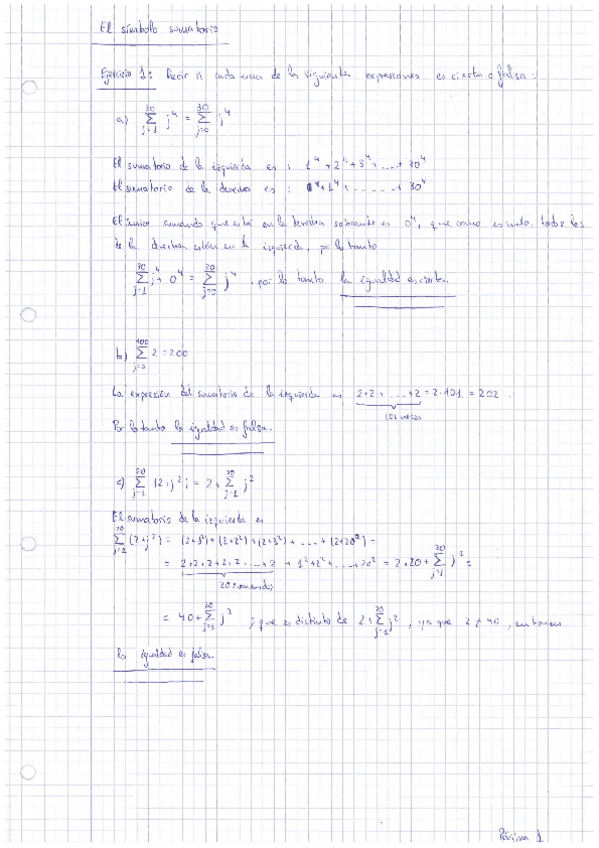 El símbolo sumatorio
Ejercicio 1: Decir si cada una de las siguientes expresiones es cierta o falsa:
a) ∑_{j=1}^{30} j⁴ = ∑_{j=0}^{30} j⁴
El sumatorio de la izquierda es : 1⁴ + 2⁴ + 3⁴ + ... + 30⁴
El sumatorio de la derecha es : 0⁴ + 1⁴ + ...... + 30⁴
El único sumando que está en la derecha sobrante es 0⁴, que como es nulo, todos los
de la derecha están en la izquierda, por lo tanto
∑_{j=1}^{30} j⁴ + 0⁴ = ∑_{j=0}^{30} j⁴ , por lo tanto la igualdad es cierta.
b) ∑_{j=0}^{100} 2 = 200
La expresión del sumatorio de la izquierda es 2+2+ ... +2 = 2·101 = 202 .
101 veces
Por lo tanto la igualdad es falsa.
c) ∑_{j=1}^{20} (2+j²) = 2+ ∑_{j=1}^{20} j²
El sumatorio de la izquierda es
∑_{j=1}^{20} (2+j²) = (2+1²)+(2+2²)+(2+3²)+ ... +(2+20²) =
= 2+2+2+2+ ... +2 + 1²+2²+ ... +20² = 2·20 + ∑_{j=1}^{20} j² =
20 sumandos
= 40 + ∑_{j=1}^{20} j² ; que es distinto de 2+ ∑_{j=1}^{20} j² , ya que 2 ≠ 40 , entonces
la igualdad es falsa.
Página 1